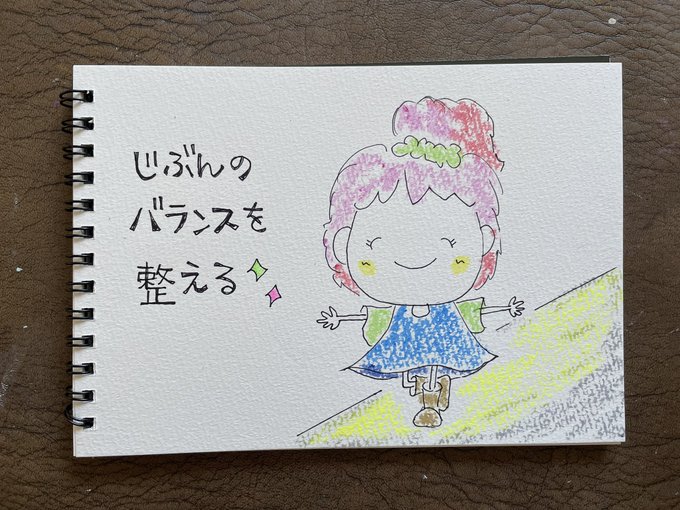 じぶんの
バランスを
整える